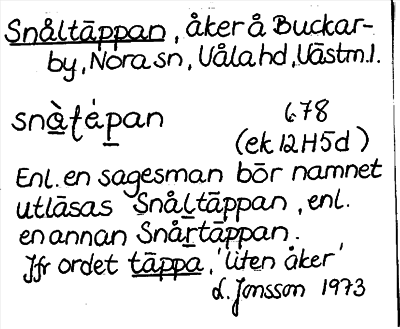 Snåltäppan, åker å Buckar-
by, Nora sn, Våla hd, Västm.l.
snàṭápan 678
(ek 12H5d)
Enl. en sagesman bör namnet
utläsas Snåltäppan, enl.
en annan Snårtäppan.
Jfr ordet täppa, 'liten åker'
L. Jonsson 1973